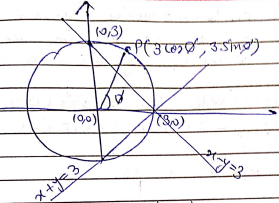 (0,3)
P(3cosø, 3.sinø)
ø
(0,0)
(3,0)
x+y=3
x-y=3